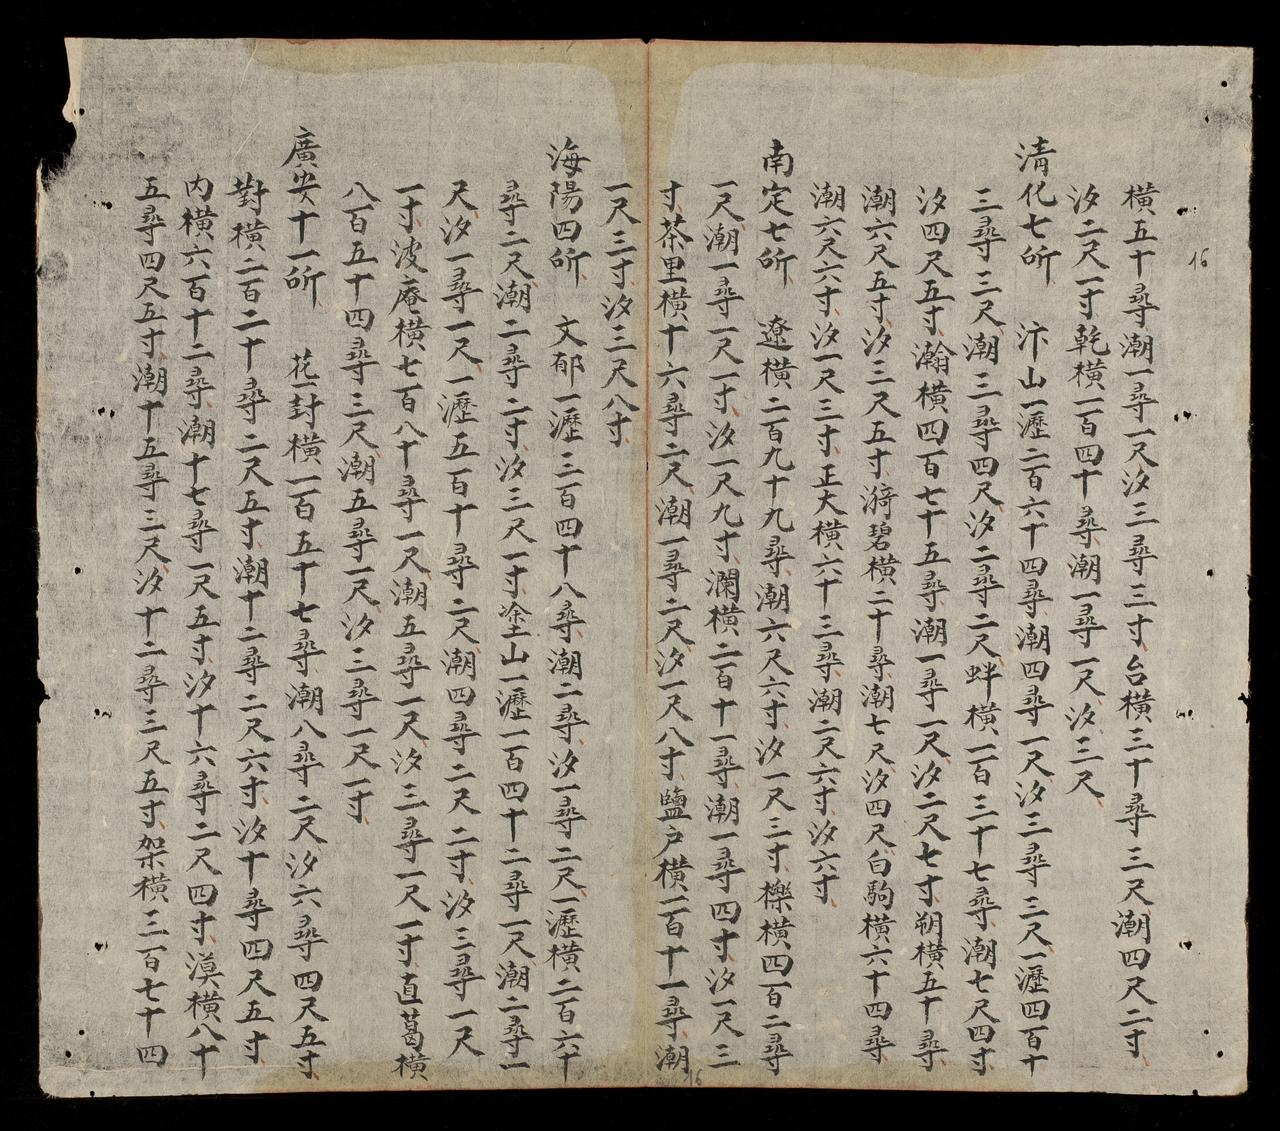 16
橫五十尋潮一尋一尺汐三尋三寸台橫三十尋三尺潮四尺二寸
汐二尺一寸乾橫一百四十尋潮一尋一尺汐三尺
清化七所 汴山一瀝二百六十四尋潮四尋一尺汐三尋三尺一瀝四百十
三尋三尺潮三尋四尺汐二尋二尺蚌橫一百三十七尋潮七尺四寸
汐四尺五寸瀚橫四百七十五尋潮一尋一尺汐二尺七寸朔橫五十尋
潮六尺五寸汐三尺五寸漪碧橫二十尋潮七尺汐四尺白駒橫六十四尋
潮六尺六寸汐一尺三寸正大橫六十三尋潮二尺六寸汐六寸
南定七所 遼橫二百九十九尋潮六尺六寸汐一尺三寸櫟橫四百二尋
一尺潮一尋一尺一寸汐一尺九寸瀾橫二百十一尋潮一尋四寸汐一尺三
寸茶里橫十六尋二尺潮一尋二尺汐一尺八寸鹽户橫二百十一尋潮
一尺三寸汐三尺八寸
海陽四所 文郁一瀝三百四十八尋潮二尋汐一尋二尺一瀝橫二百六十
尋二尺潮二尋二寸汐三尺一寸塗山一瀝一百四十二尋一尺潮二尋一
尺汐一尋一尺一瀝五百十尋二尺潮四尋二尺二寸汐三尋一尺
一寸波庵橫七百八十尋一尺潮五尋一尺汐三尋一尺一寸直葛橫
八百五十四尋三尺潮五尋一尺汐三尋一尺一寸
廣安十一所 花封橫一百五十七尋潮八尋二尺汐六尋四尺五寸
對橫二百二十尋二尺五寸潮十二尋二尺六寸汐十尋四尺五寸
内橫六百十二尋潮十七尋一尺五寸汐十六尋二尺四寸漠橫八十
五尋四尺五寸潮十五尋三尺汐十二尋三尺五寸架橫三百七十四
16